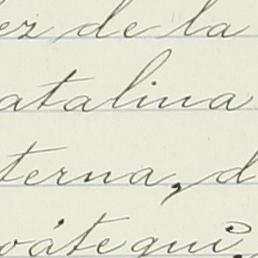 ez de la
atalina
terna, d
oátegui,